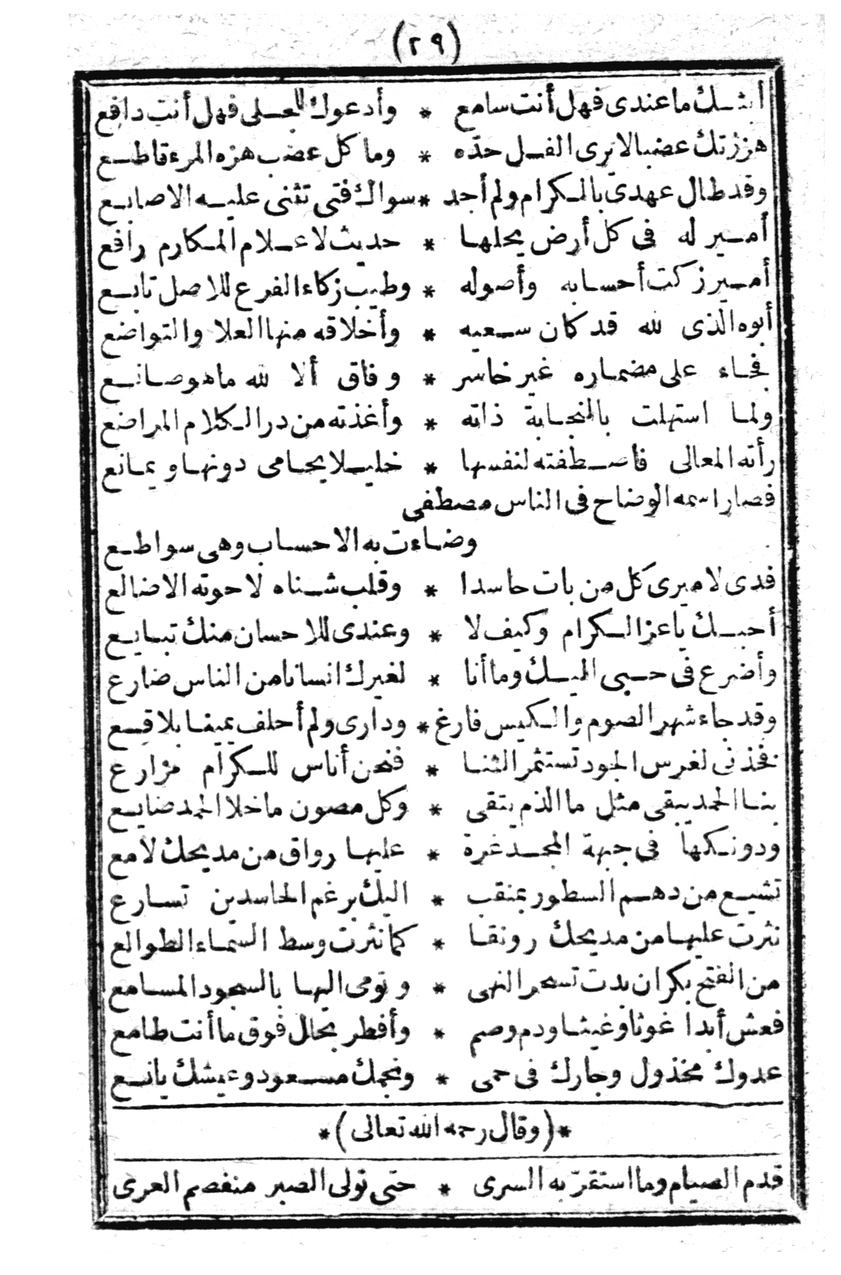 (٢٩)
أبثك ما عندى فهل أنت سامع * وأدعوك للجلى فهل أنت دافع
هززتك عضبا لا يرى الفل حده * وما كل عضب هزه المرء قاطع
وقد طال عهدى بالكرام ولم أجد * سواك فتى تثنى عليه الاصابع
أمير له فى كل أرض يحلها * حديث لاعلام المكارم رافع
أمير زكت أحسابه وأصوله * وطيب زكاء الفرع للاصل تابع
أبوه الذى لله قد كان سعيه * وأخلاقه منها العلا والتواضع
فجاء على مضماره غير خاسر * وفاق ألا لله ما هو صانع
ولما استهلت بالنجابة ذاته * وأغذته من در الكلام المراضع
رأته المعالى فاصطفته لنفسها * خليلا يحامى دونها ويمانع
فصار اسمه الوضاح فى الناس مصطفى
وضاءت به الاحساب وهى سواطع
فدى لاميرى كل من بات حاسدا * وقلب شناه لا حوته الاضالع
أحبك ياعز الكرام وكيف لا * وعندى للاحسان منك تبايع
وأضرع فى حبى اليك وما أنا * لغيرك انسانا من الناس ضارع
وقد جاء شهر الصوم والكيس فارغ * ودارى ولم أحلف يمينا بلاقع
فخذنى لغرس الجود تستثمر الثنا * فنحن أناس للكرام مزارع
بنا الحمد يبقى مثل ما الذم يتقى * وكل مصون ما خلا الحمد ضايع
ودونكها فى جبهة المجد غرة * عليها رواق من مديحك لامع
تشيع من دهم السطور بمنقب * اليك برغم الحاسدين تسارع
نثرت عليها من مديحك رونقا * كما نثرت وسط السماء الطوالع
من الفتح بكر ان بدت تسحر النهى * وتومى اليها بالسجود المسامع
فعش أبدا غوثا وغيثا ودم وصم * وأفطر بحال فوق ما أنت طامع
عدوك مخذول وجارك فى حمى * ونجمك مسعود وعيشك يانع
*(وقال رحمه الله تعالى)*
قدم الصيام وما استقر به السرى * حتى تولى الصبر منفصم العرى